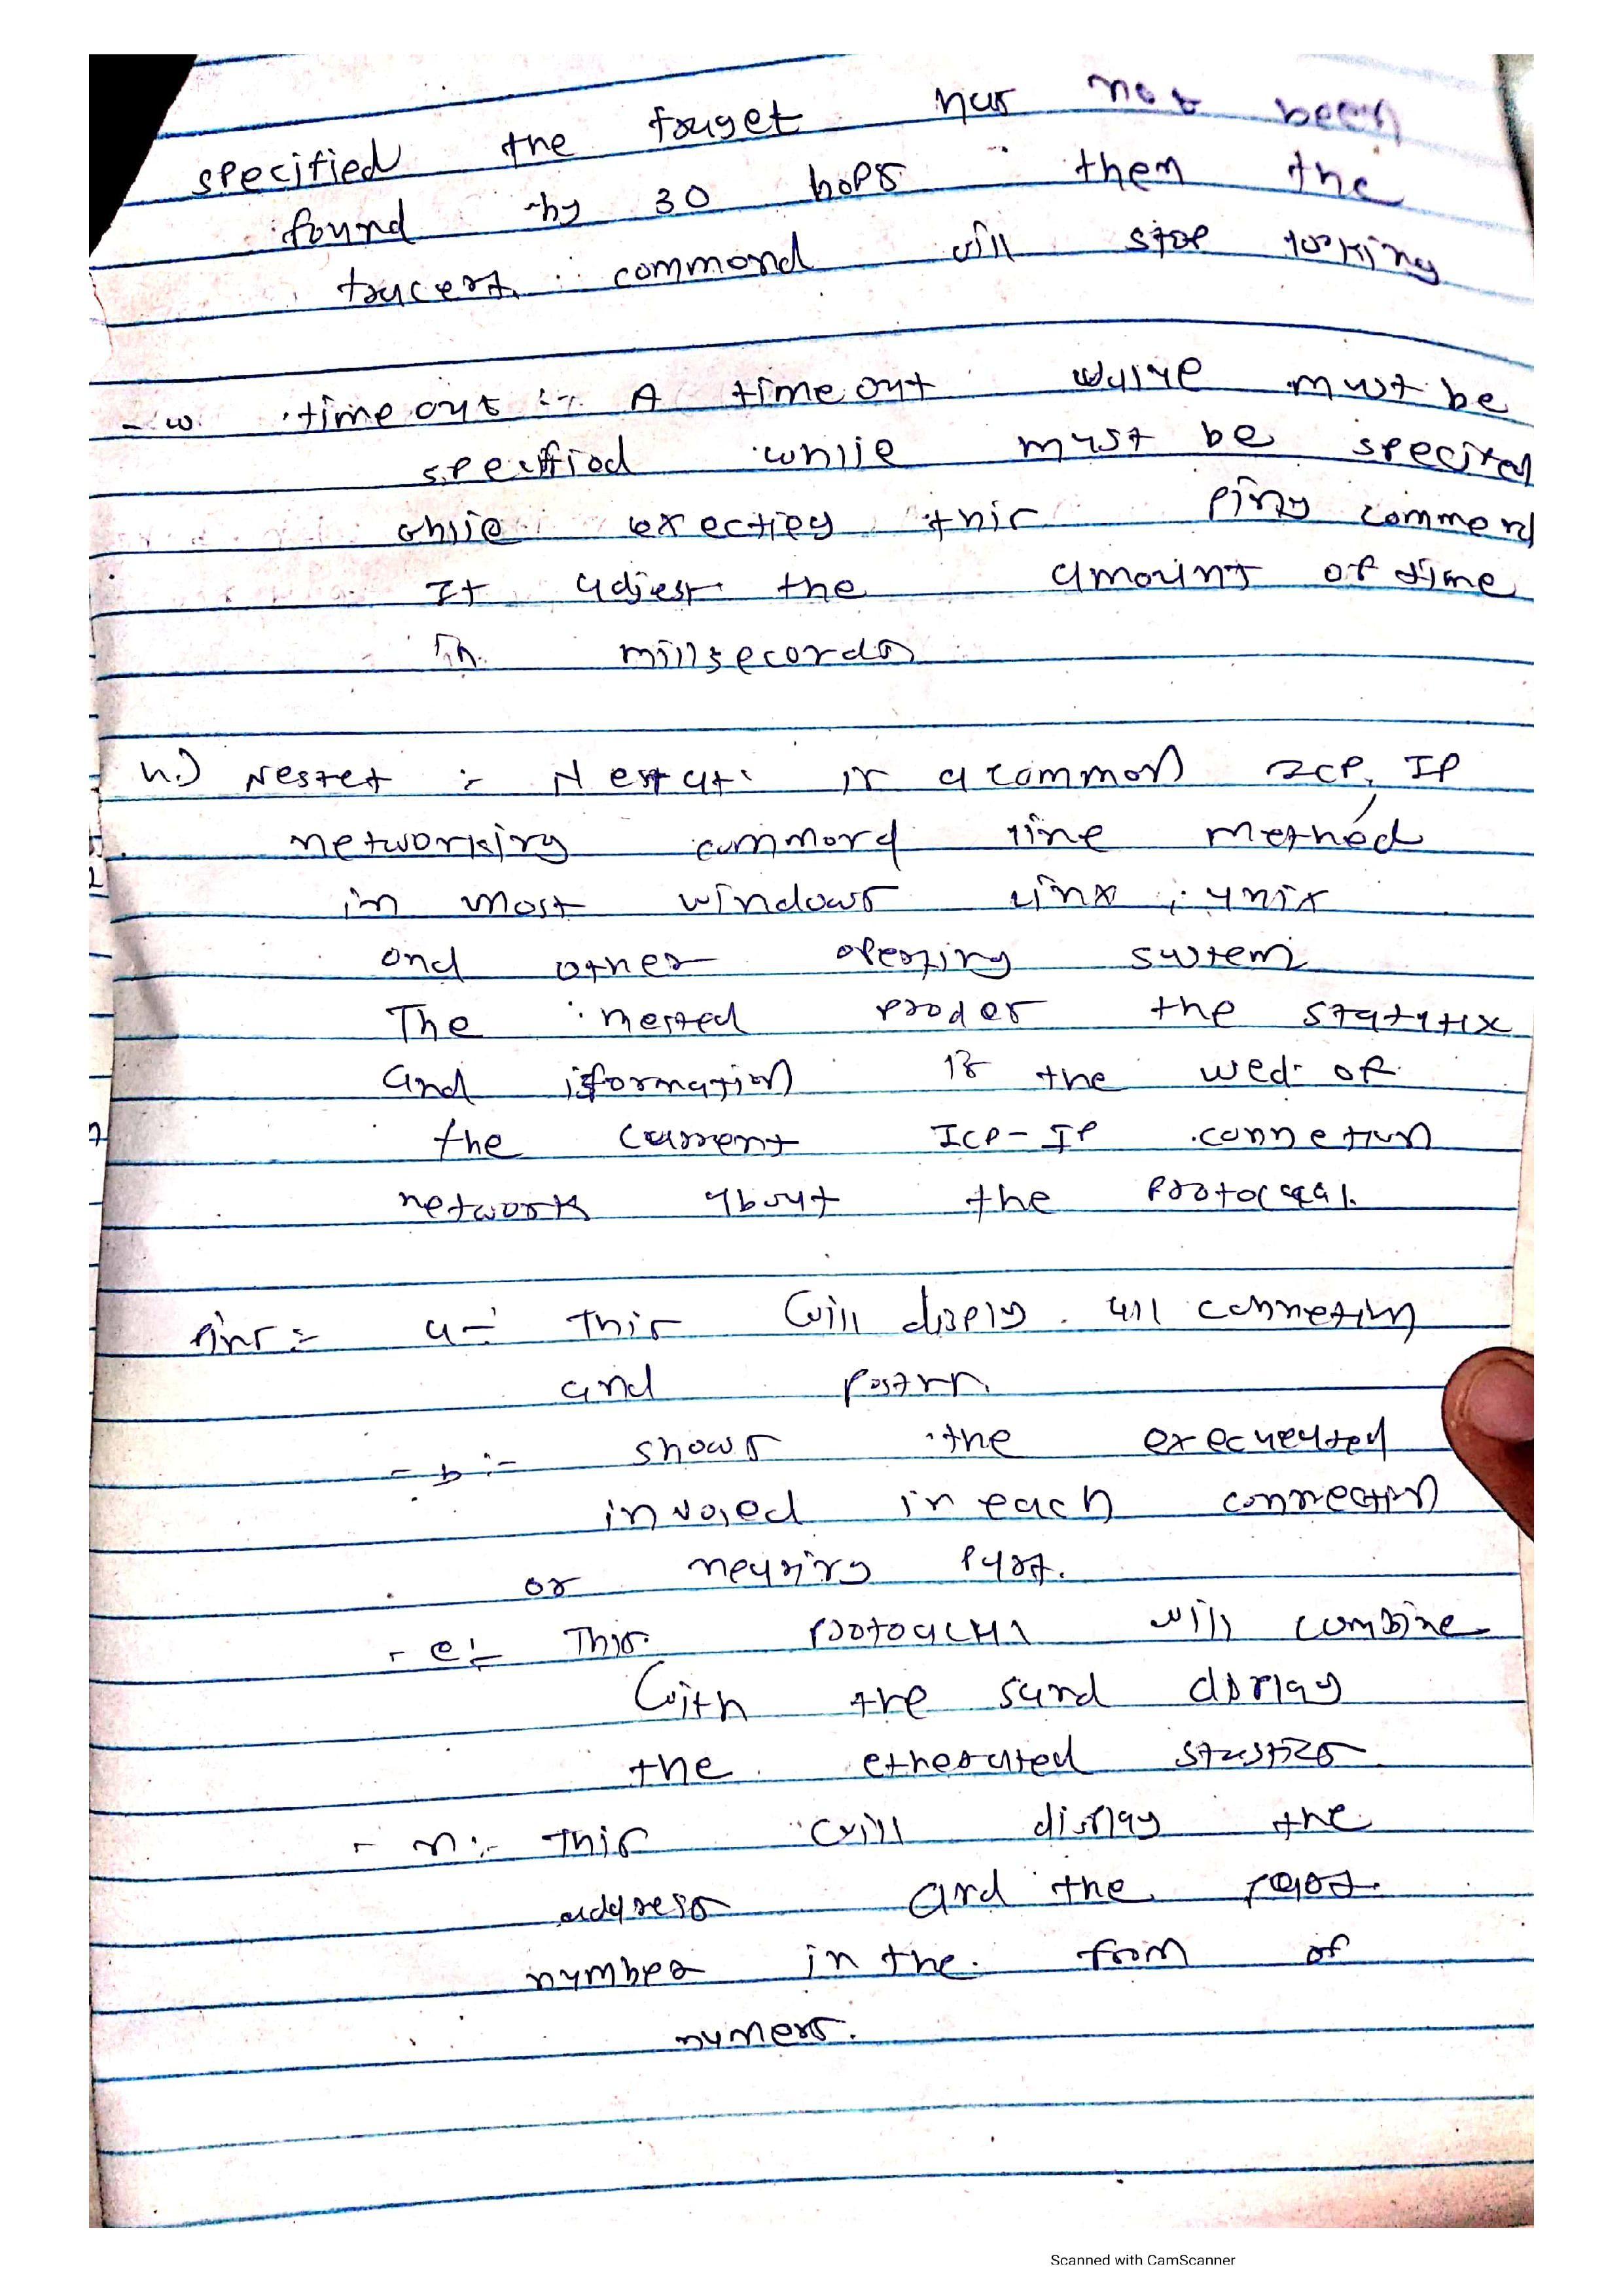 specified the fouget has not been
found by 30 hops then the
tracert commond will stop looking
- w. timeout :- A timeout value must be
specified while must be specited
while exectiey this ping commend
It adjest the amount of time
in millsecords
4.) Nestet :- Nestat is a common TCP, IP
networking commord line method
in most windows linx, unix
and other opesting system
The nested the statatix
and iformation is the wed of
the current TCP-IP connetion
network about the
a - This will disply all connetion
and
- b :- shows the
involed in each connection
or
- e :- This will combine
with the sand display
the stastics
- n :- This will display the
address and the
number in the from of
numers.
Scanned with CamScanner